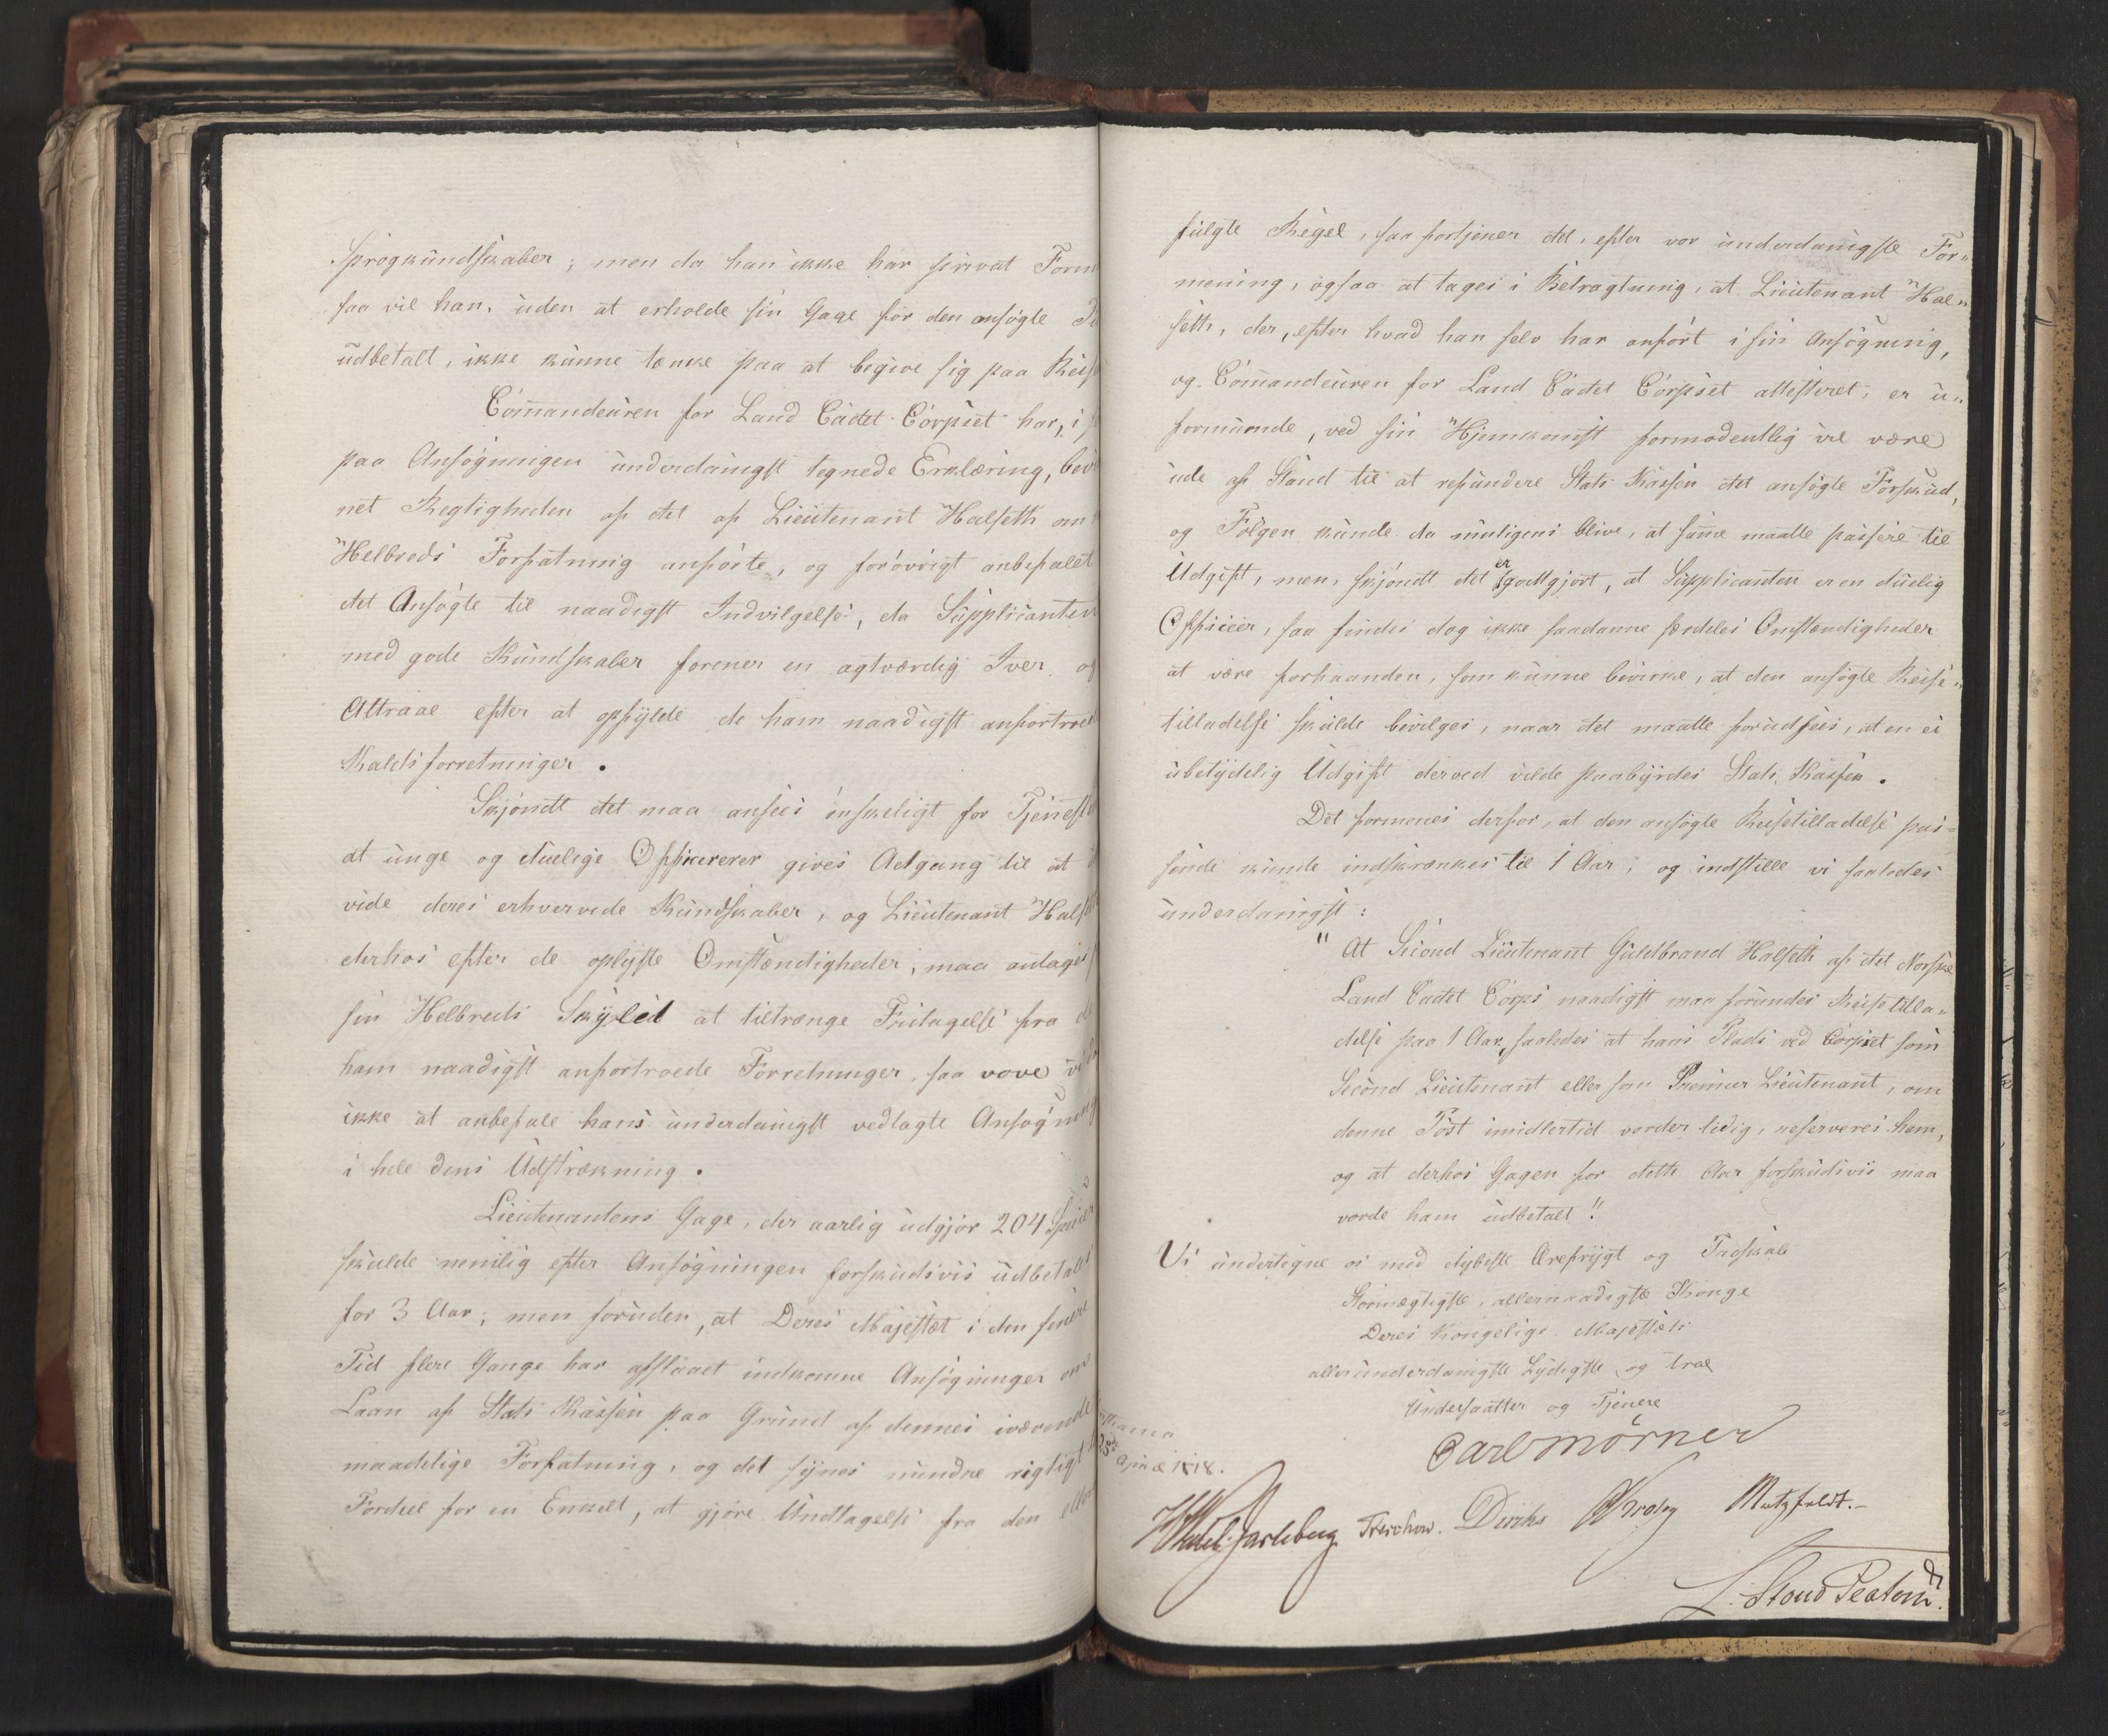 Sprogkundskaber; men da han ikke har privat Form
saa vil han, uden at erholde sin Gage for den ansøgte
udbetalt, ikke kunne tænke paa at begive sig paa Reis
Com̄andeuren for Land Cadet Corpset har, i
paa Ansøgningen underdanigst tegnede Erklæring, bevi
net Rigtigheden af det af Lieutenant Halseth om
Helbreds Forfatning anførte, og forøvrigt anbefalet
det Ansøgte til naadigst Indvilgelse, da Supplicanten
med gode Kundskaber forener en agtværdig Iver og
Attraae efter at opfylde de ham naadigst anfortroede
Kaldsforretninger.
Skjøndt det maa ansees ønskeligt for Tjeneste
at unge og duelige Officierer gives Adgang til at
vide deres erhvervede Kundskaber, og Lieutenant Halseth
derhos efter de oplyste Omstændigheder, maa antages
sin Helbreds Skyld at tiltrænge Fritagelse fra de
ham naadigst anfortroede Forretninger, saa vove vi
ikke at anbefale hans underdanigst vedlagte Ansøgning
i hele dens Udstrækning.
Lieutenantens Gage, der aarlig udgjør 204 Specier
skulde nemlig efter Ansøgningen forskudsvis udbetales
for 3 Aar; men foruden, at Deres Majestæt i den senere
Tid flere Gange har afslaaet indkomne Ansøgninger om
Laan af Stats Kassen paa Grund af dennes værende
maadelige Forfatning, og det synes mindre rigtigt
Fordeel for en Enkelt, at gjøre Undtagelse fra den
fulgte Regel, saa fortjener det, efter vor underdanigste For„
mening, ogsaa at tages i Betragtning, at Lieutenant Hal„
seth, der, efter hvad han selv har anført i sin Ansøgning,
og Com̄andeuren for Land Cadet Corpset attesteret, er u„
formuende, ved sin Hjemkomst formodentlig vil være
ude af Stand til at refundere Stats Kassen det ansøgte Forskud,
og Følgen kunde da muligens blive, at sam̄e maatte passere til
Udgift, men, skjøndt det er godtgjort, at Supplicanten er en duelig
Officier, saa findes dog ikke saadanne særdeles Omstændigheder
at være forhaanden, som kunne bevirke, at den ansøgte Reise„
tilladelse skulde bevilges, naar det maatte forudsees, at en ei
ubetydelig Udgift derved vilde paabyrdes Stats Kassen.
Det formenes derfor, at den ansøgte Reisetilladelse pas„
sende kunde indskrænkes til 1 Aar; og indstille vi saaledes
underdanigst:
"At Second Lieutenant Guldbrand Halseth af det Norske
Land Cadet Corps naadigst maa forundes Reisetilla„
delse paa 1 Aar, saaledes at hans Plads ved Corpset som
Second Lieutenant eller som Premier Lieutenant, om
denne Post imidlertid vorder ledig, reserveres ham,
og at derhos Gagen for dette Aar forskudsvis maa
vorde ham udbetalt".
Vi undertegne os med dybeste Ærefrygt og Troskab
Stormægtigste, allernaadigste Konge
Deres Kongelige Majestæts
allerunderdanigste Lydigste og troe
Undersaatter og Tjenere
Carl Mörner
April 1818.
HWedel-Jarlsberg Treschow. Diriks Krohg Motzfeldt.
L. Stoud Platou